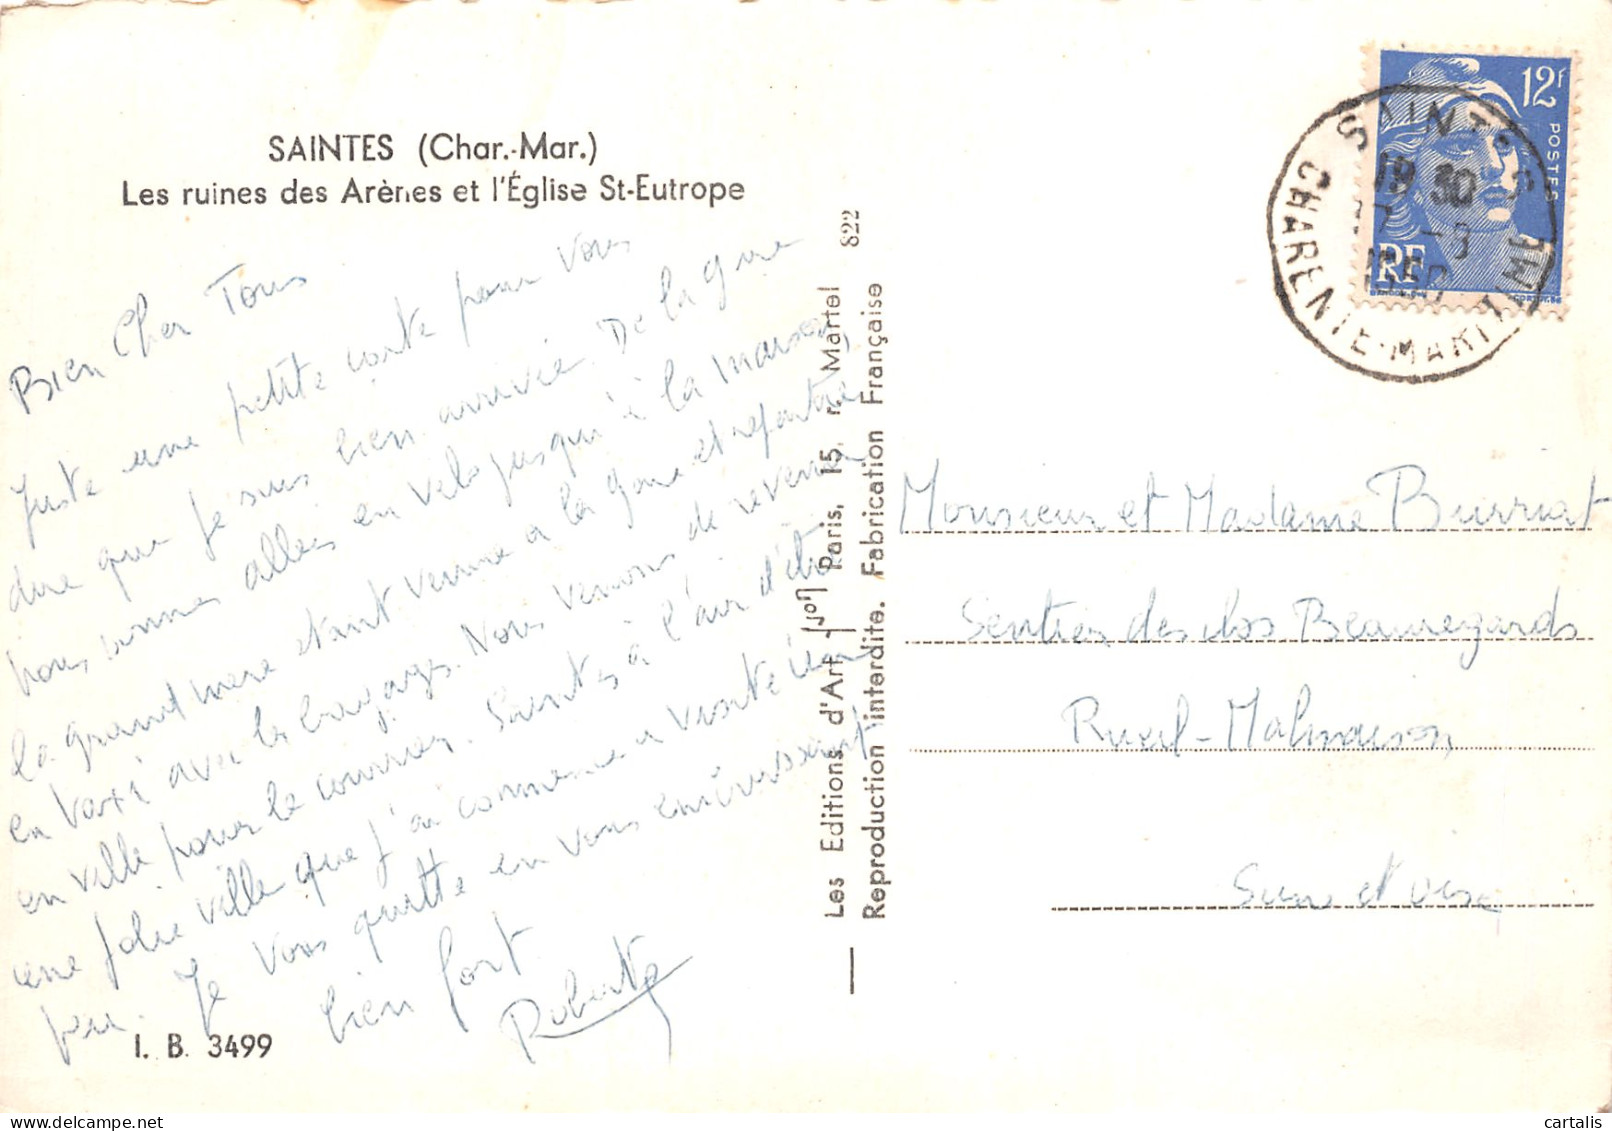 SAINTES (Char.-Mar.)
Les ruines des Arènes et l'Église St-Eutrope
Bien Cher Tous
Juste une petite carte pour vous
dire que je suis bien arrivée. De la gare
nous sommes allées en vélo jusqu'à la maison,
la grand mère étant venue à la gare et repartie
en taxi avec les bagages. Nous venons de revenir
en ville pour le courrier. Saintes à l'air d'être
une jolie ville que j'ai commencé a visité un
peu. Je vous quitte en vous embrassant
bien fort
Roberte
I. B. 3499
822
Les Editions d'Art Yvon Paris, 15, r. Martel
Reproduction interdite. Fabrication Française
12F
POSTES
RF
SAINTES
19 30
17 - 9
1950
CHARENTE-MARITIME
Monsieur et Madame Burriat
Sentier des clos Beauregards
Rueil-Malmaison
Seine et oise
cartalis